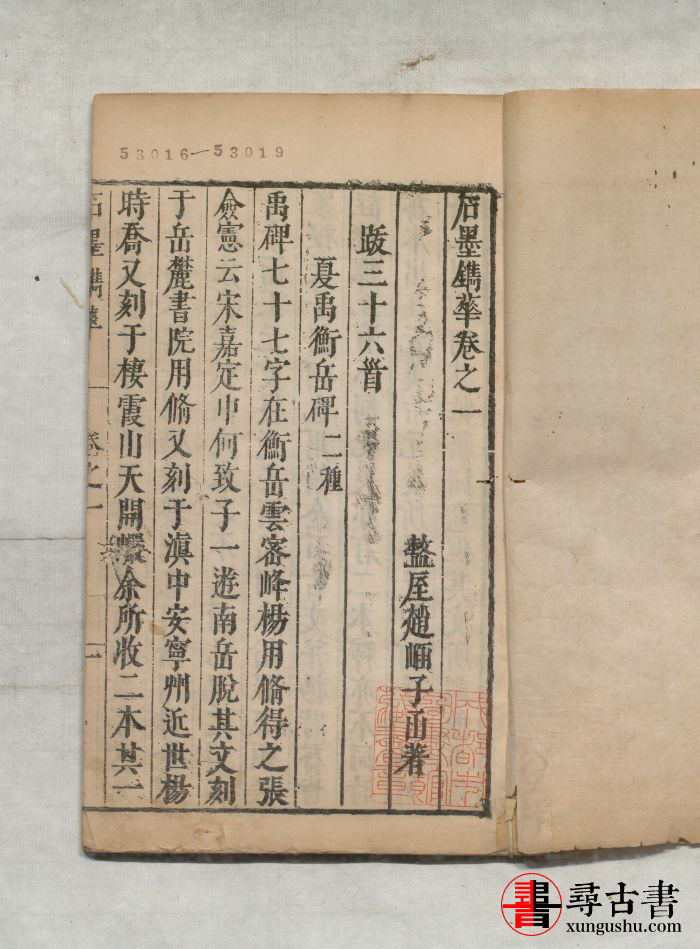 53016—53019
石墨鐫華卷之一
盩厔趙崡子函著
跋三十六首
夏禹衡岳碑二種
禹碑七十七字在衡岳雲密峰楊用脩得之張
僉憲云宋嘉定中何致子一遊南岳脫其文刻
于岳麓書院用脩又刻于滇中安寧州近世楊
時喬又刻于棲霞山天開巖余所收二本其一
石墨鐫華
卷之一
一
尋古書
xungushu.com